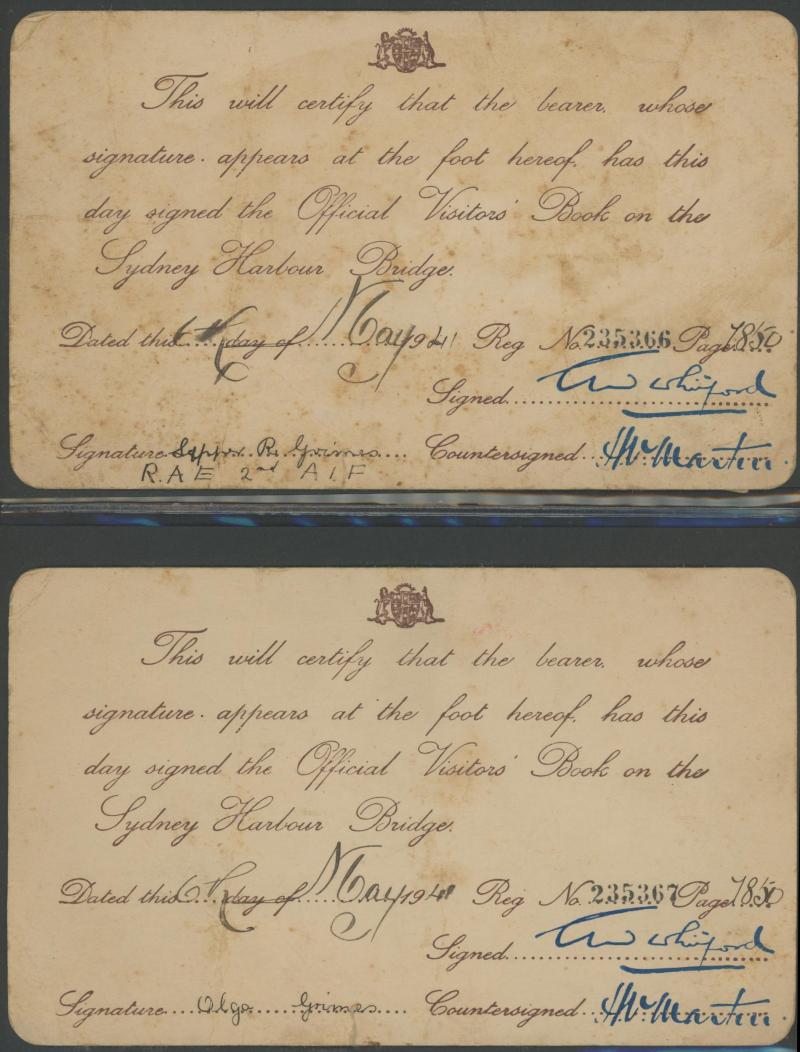 This will certify that the bearer, whose
signature appears at the foot hereof, has this
day signed the Official Visitors' Book on the
Sydney Harbour Bridge.
Dated this 6th day of May 1941 Reg No. 235366 Page 7850
Signed
Signature Sapper R. Grimes Countersigned H McMartin
R.A.E 2nd A.I.F
This will certify that the bearer, whose
signature appears at the foot hereof, has this
day signed the Official Visitors' Book on the
Sydney Harbour Bridge.
Dated this 6th day of May 1941 Reg No. 235367 Page 7850
Signed
Signature Olga Grimes Countersigned H McMartin